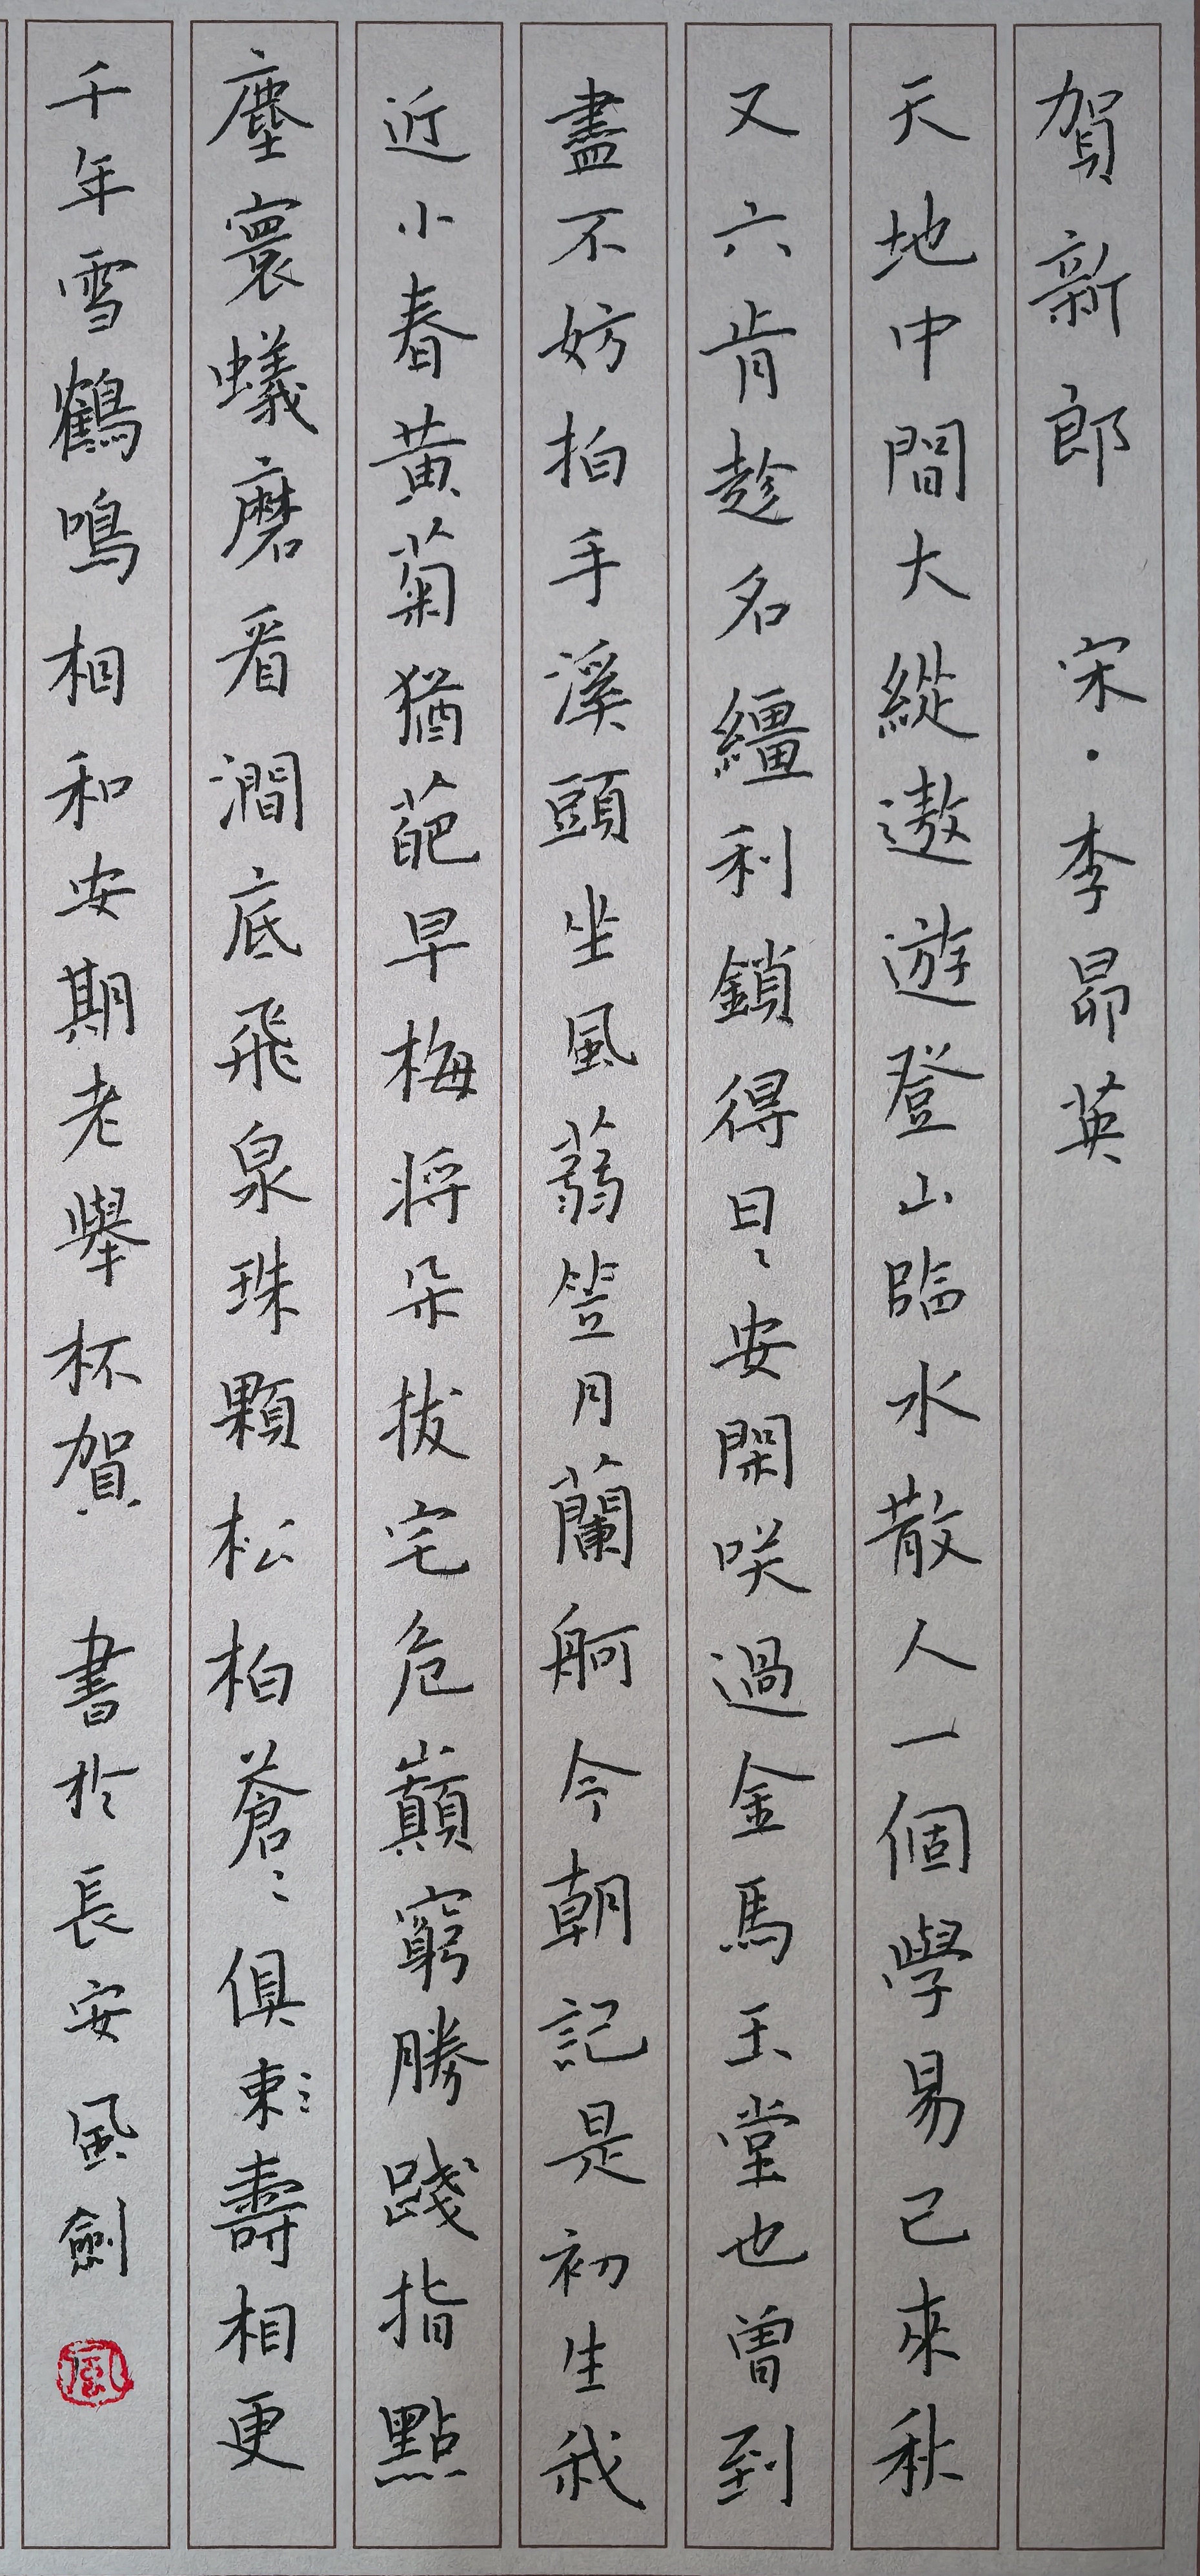 賀新郎 宋·李昴英
天地中間大縱遨遊登山臨水散人一個學易已來秋
又六肯趁名繮利鎖得日〻安閑咲過金馬玉堂也曾到
盡不妨拍手溪頭坐風蒻笠月蘭舸今朝記是初生我
近小春黃菊猶葩早梅將朵拔宅危巔窮勝踐指點
塵寰蟻磨看澗底飛泉珠顆松柏蒼〻俱壽相更
千年雪鶴鳴相和安期老舉杯賀 書於長安風劍
風